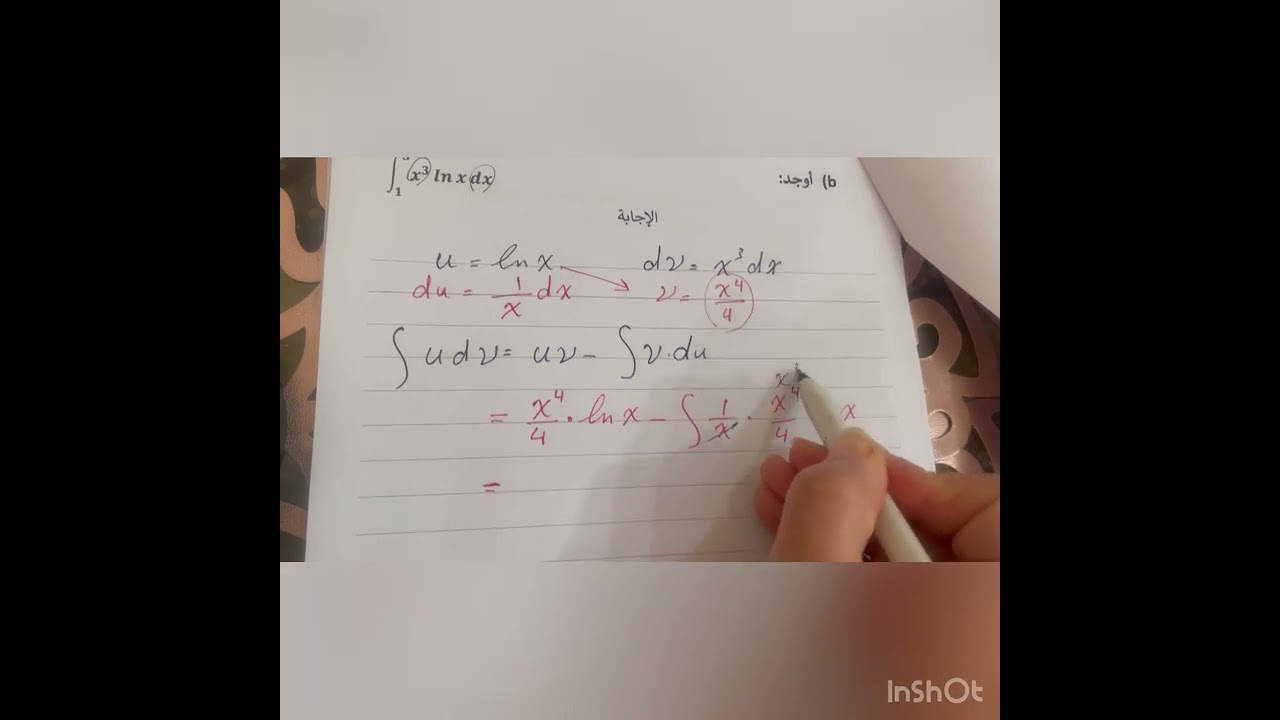 b) أوجد: ∫₁ x³ ln x dx
الإجابة
u = ln x dv = x³ dx
du = 1/x dx v = x⁴/4
∫ u dv = uv - ∫ v . du
x³
= x⁴/4 . ln x - ∫ 1/x . x⁴/4 x
=
InShOt